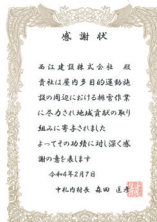 感謝状
西江建設株式会社 殿
貴社は屋内多目的運動施
設の周辺における排雪作業
に尽力され地域貢献の取り
組みに寄与されました
よってその功績に対し深く感
謝の意を表します
令和4年2月7日
中札内村長 森田 匡彦